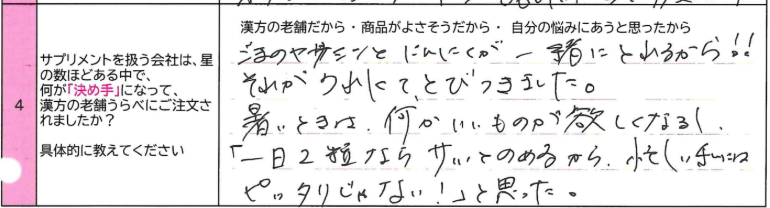 4
サプリメントを扱う会社は、星
の数ほどある中で、
何が「決め手」になって、
漢方の老舗うらべにご注文さ
れましたか？
具体的に教えてください
漢方の老舗だから・商品がよさそうだから・自分の悩みにあうと思ったから
ごまのセサミンと にんにくが 一緒に とれるから!!
それが うれしくて、とびつきました。
暑いときは、何か いいものが 欲しくなるし、
「一日2粒なら サッとのめるから、忙しい私には
ピッタリじゃない！」と思った。